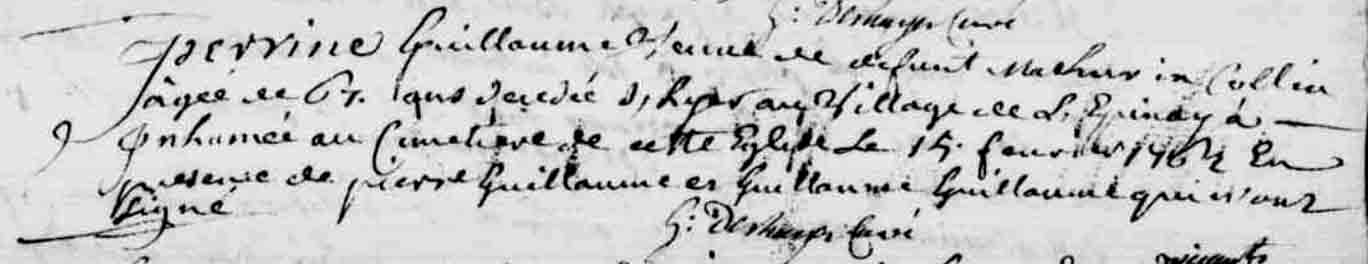 G: Deshayes Curé
Perrine Guillaume Veuve de defunt Mathurin Collin
âgée de 67. ans decedée d'hyer au Village de L'Epinay a
Inhumée au Cimetiere de cette Eglise Le 15. fevrier 1762 En
presence de pierre Guillaume et Guillaume Guillaume qui n'ont
signé
G: Deshayes Curé